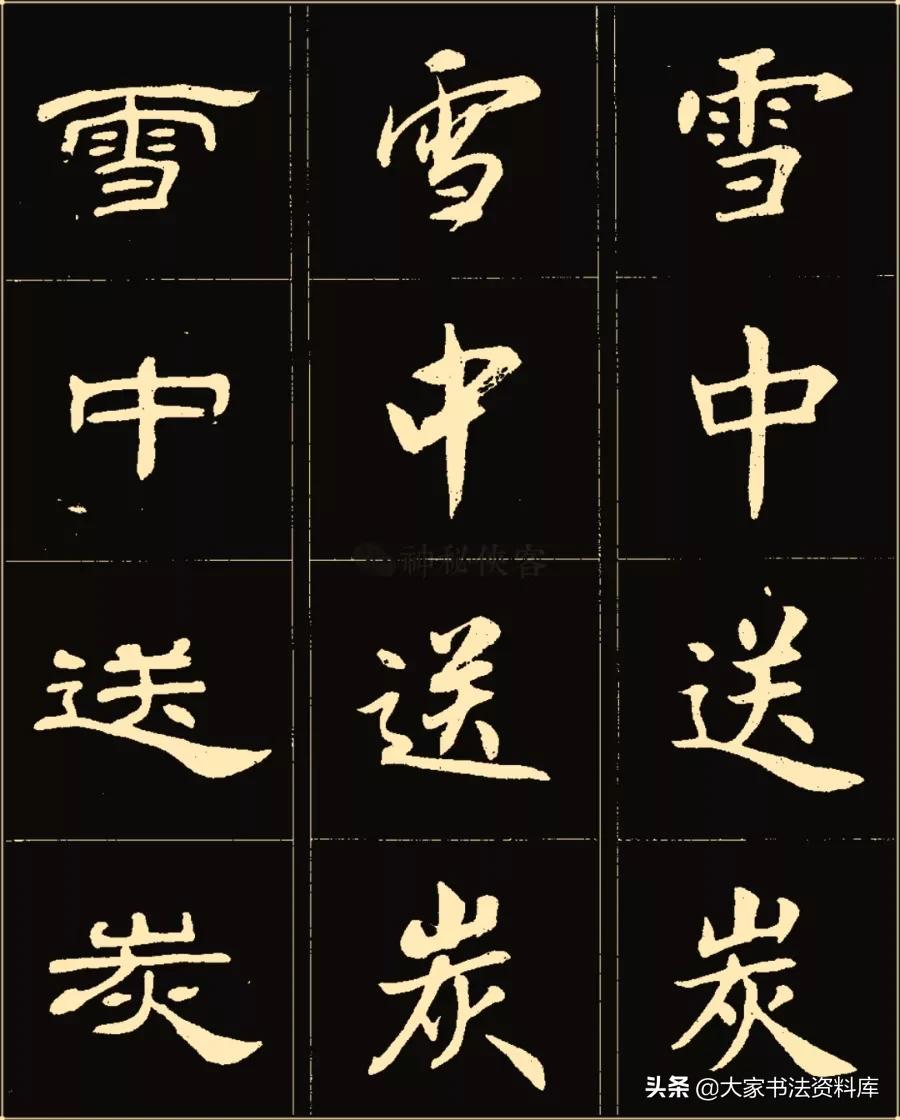 雪中送炭
雪中送炭
雪中送炭
神秘侠客
头条 @大家书法资料库